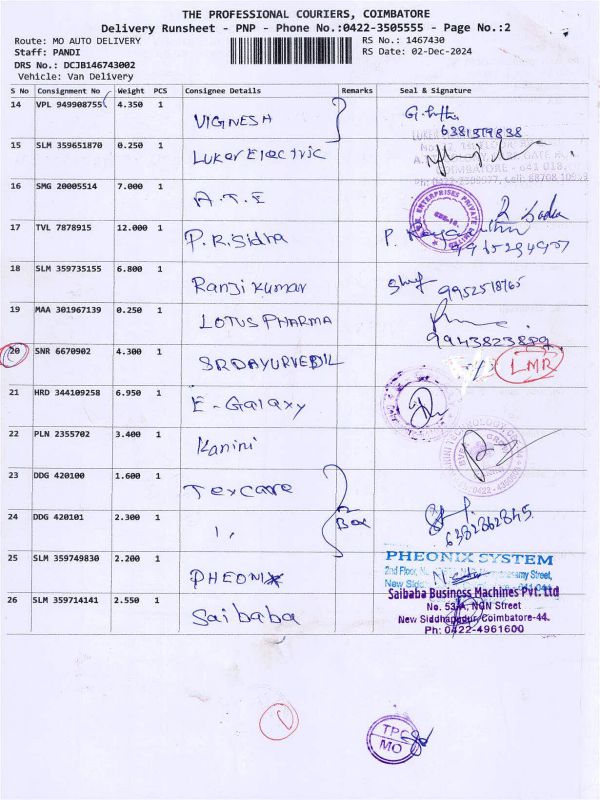 THE PROFESSIONAL COURIERS, COIMBATORE
Delivery Runsheet - PNP - Phone No.:0422-3505555 - Page No.:2
Route: MO AUTO DELIVERY RS No.: 1467430
Staff: PANDI RS Date: 02-Dec-2024
DRS No.: DCJB146743002
Vehicle: Van Delivery
S No Consignment No Weight PCS Consignee Details Remarks Seal & Signature
14 VPL 949908755 4.350 1 VIGNESH
15 SLM 359651870 0.250 1 Luker Electric
16 SMG 20005514 7.000 1 A.T.E
17 TVL 7878915 12.000 1 P.R.Sidha
18 SLM 359735155 6.800 1 Ranji Kumar 9952518765
19 MAA 301967139 0.250 1 LOTUS PHARMA 9943823889
20 SNR 6670902 4.300 1 SRDAYURVEDIL LMR
21 HRD 344109258 6.950 1 E-Galaxy
22 PLN 2355702 3.400 1 Kanini
23 DDG 420100 1.600 1 Texcare
24 DDG 420101 2.300 1 Box
25 SLM 359749830 2.200 1 PHEONIX
PHEONIX SYSTEM
2nd Floor,
New
26 SLM 359714141 2.550 1 Saibaba
Saibaba Business Machines Pvt. Ltd
No. 53-A, NGN Street
New Siddhapudur, Coimbatore-44.
Ph: 0422-4961600
TPC
MO